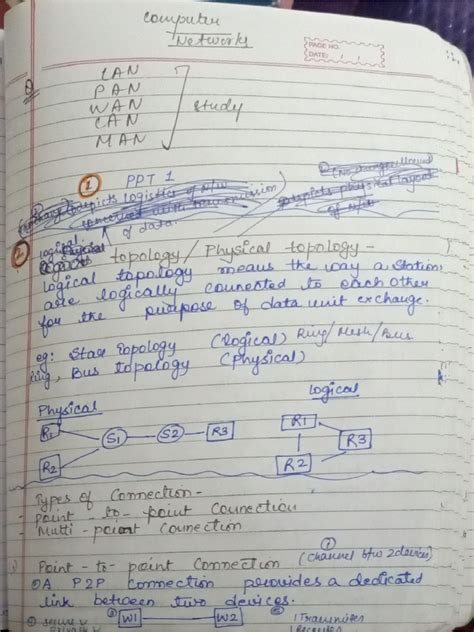 Computer
Networks
PAGE NO.
DATE:
Q
LAN
PAN
WAN
CAN
MAN
Study
1 PPT 1
of data
of N/w
2 logical topology / Physical topology -
logical topology means the way a station
are logically connected to each other
for the purpose of data unit exchange.
eg: Star Topology (logical) Ring/Mesh/Bus
ring, Bus topology (Physical)
Physical
logical
R1 S1 S2 R3
R2
R1
R3
R2
Types of Connection -
- point - to - point Connection
- Multi - point Connection
Point - to - point Connection (channel btw 2 devices)
A P2P connection provides a dedicated
link between two devices.
W1 W2
1 Transmitter